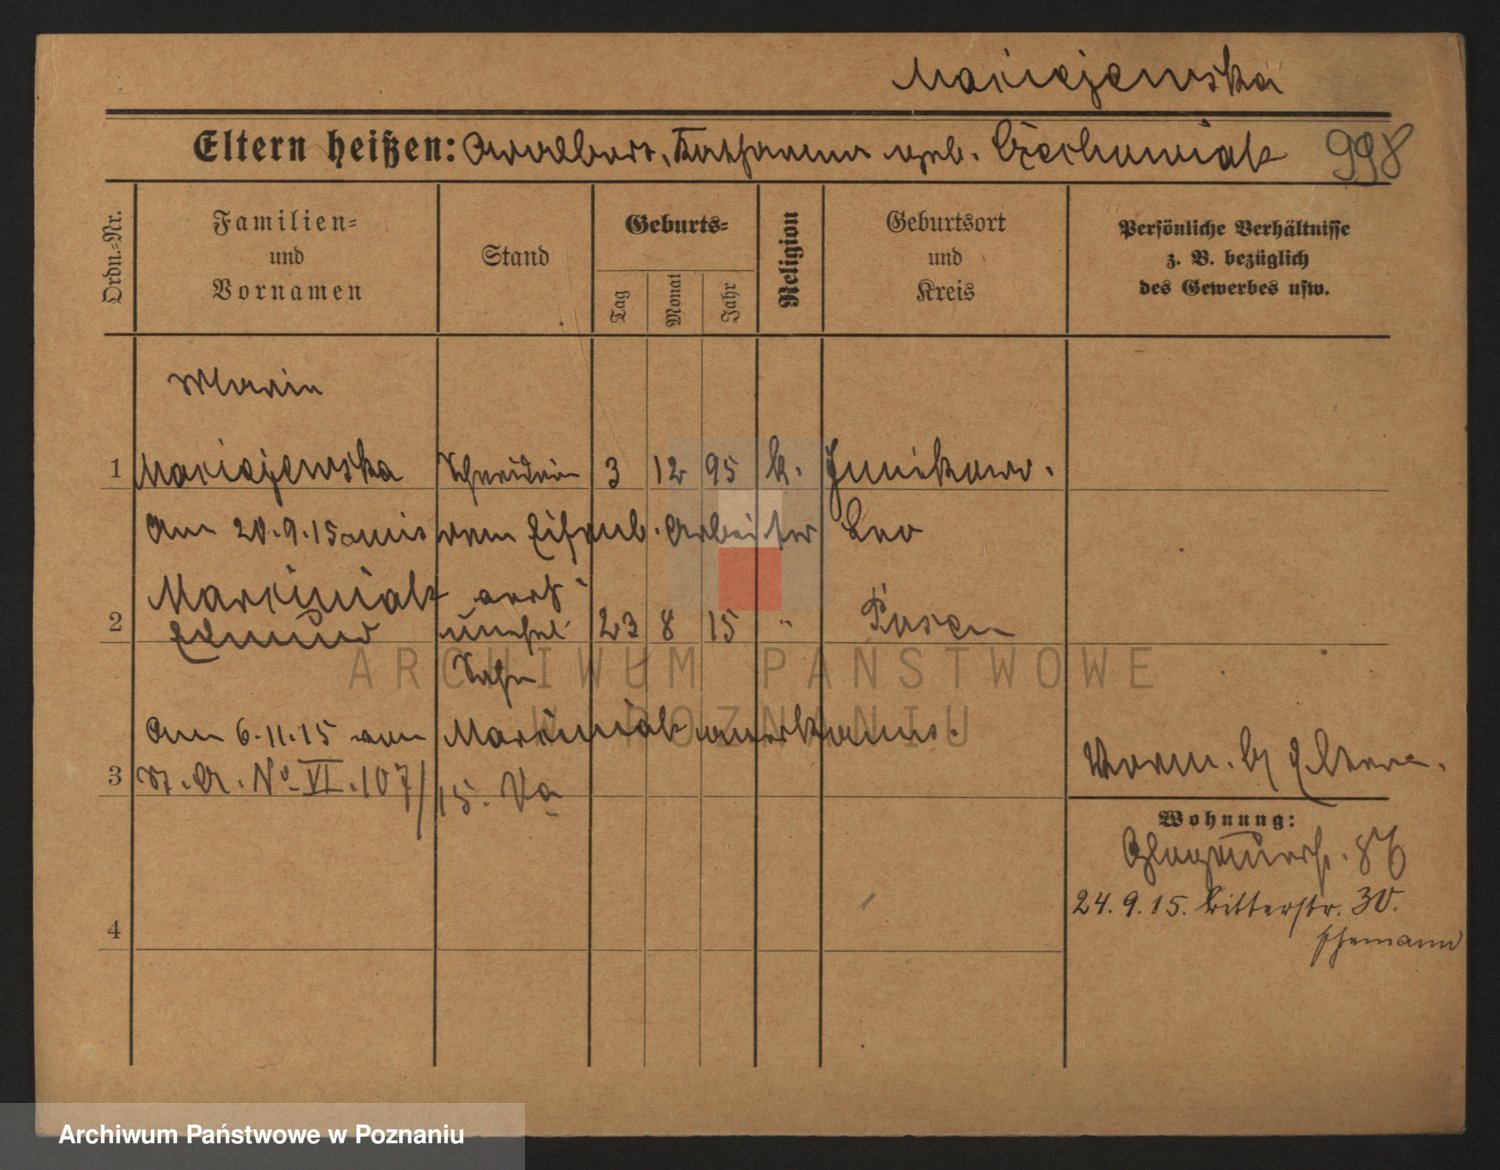 Maciejewska
Eltern heißen: Adalbert, Katharina geb. Czechowiak 998
Ordn.=Nr.
Familien=
und
Vornamen
Stand
Geburts=
Tag
Monat
Jahr
Religion
Geburtsort
und
Kreis
Persönliche Verhältnisse
z. B. bezüglich
des Gewerbes usw.
Maria
1 Maciejewska Schneiderin 3 12 95 k. Junikowo.
Am 20.9.15 mit dem Eisenb. Arbeiter Leo
Marciniak verh
2 Edmund unehel. 23 8 15 " Posen
Sohn
Am 6.11.15 von Marciniak anerkannt.
3 St. A. No VI. 107/15.
Vorm. b/ Eltern.
Wohnung:
Glogauerstr. 86
24.9.15. Bitterstr. 30.
Ehemann
4
ARCHIWUM PAŃSTWOWE
W POZNANIU
Archiwum Państwowe w Poznaniu